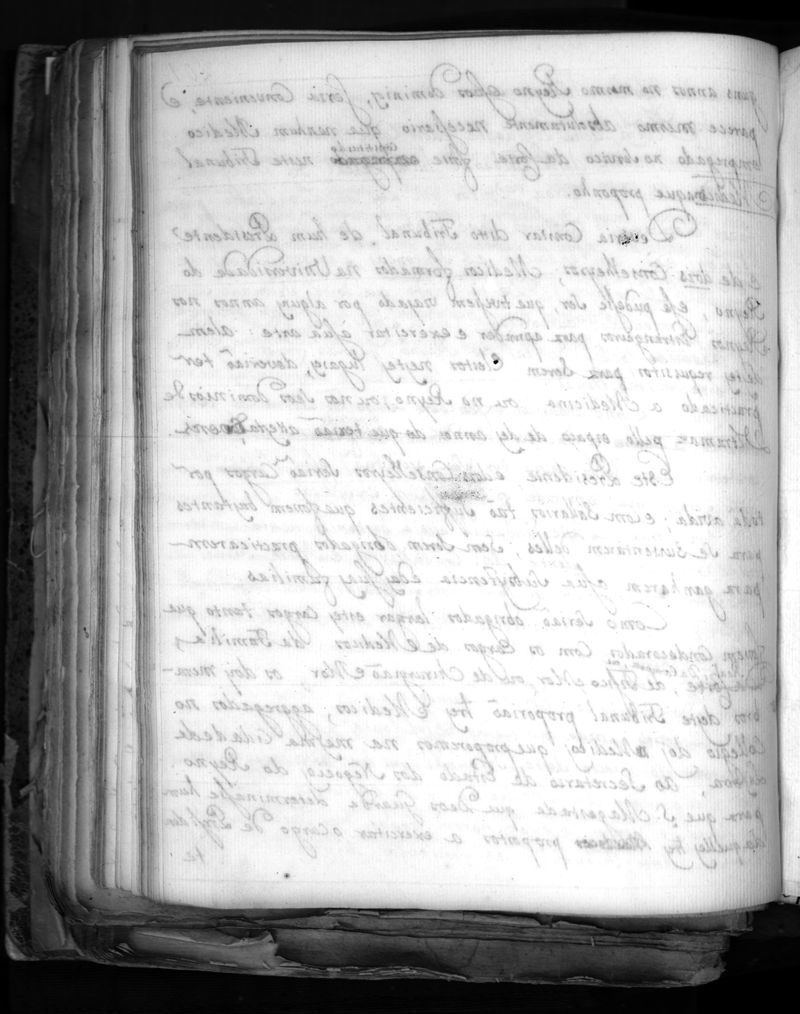 guns annos no mesmo Reyno e seos dominios, seria conveniente, e
parece mesmo absolutamente necessario que nenhum Medico
empregado no serviço da Corte fosse constituido neste Tribunal
Medico que proponho.
Deveria Constar dito Tribunal, de hum Presidente
e de dois Conselheyros, Medicos formados na Universidade do
Reyno, e se pudesse ser, que tivessem viajado por alguns annos nos
Reynos Estrangeiros para aprender e exercitar a sua arte: alem
destes requisitos para serem Eleitos nestes lugares, deverião ter
practicado a Medicina ou no Reyno, ou nos seos dominios
Ultramar pello espaço de dez annos do que terião attestações.
Este Presidente e dois Conselheyros serião Cargos por
toda a vida; e com Salarios tão sufficientes que fossem bastantes
para se sustentarem delles, sem serem obrigados practicarem
para ganharem a sua subsistencia e das suas familias
Como serião obrigados largar estes cargos tanto que
fossem condecorados com os cargos de Medicos da Familia
de Fisico Mor, ou de Chirurgião Mor, os dois mem-
bros deste Tribunal proporião tres Medicos, aggregados no
Collegio dos Medicos, que proporemos na mesma Cidade de
Lisboa, ao Secretario de Estado dos Negocios do Reyno
para que S. Magestade que Deos Guarde determinasse hum
daquelles tres propostos a exercitar o cargo de
te